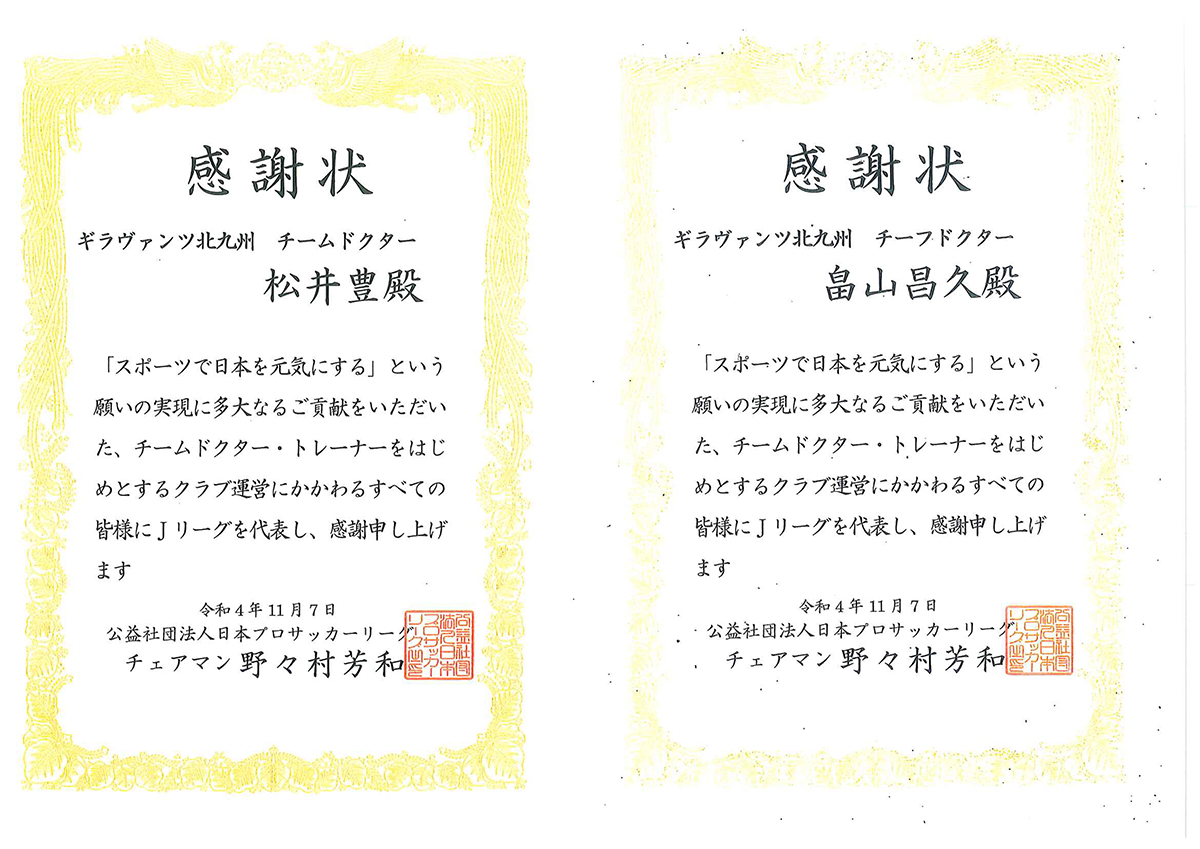 感謝状
ギラヴァンツ北九州　チームドクター
松井豊殿
「スポーツで日本を元気にする」という
願いの実現に多大なるご貢献をいただい
た、チームドクター・トレーナーをはじ
めとするクラブ運営にかかわるすべての
皆様にＪリーグを代表し、感謝申し上げ
ます
令和４年11月７日
公益社団法人日本プロサッカーリーグ
チェアマン 野々村芳和
感謝状
ギラヴァンツ北九州　チーフドクター
畠山昌久殿
「スポーツで日本を元気にする」という
願いの実現に多大なるご貢献をいただい
た、チームドクター・トレーナーをはじ
めとするクラブ運営にかかわるすべての
皆様にＪリーグを代表し、感謝申し上げ
ます
令和４年11月７日
公益社団法人日本プロサッカーリーグ
チェアマン 野々村芳和